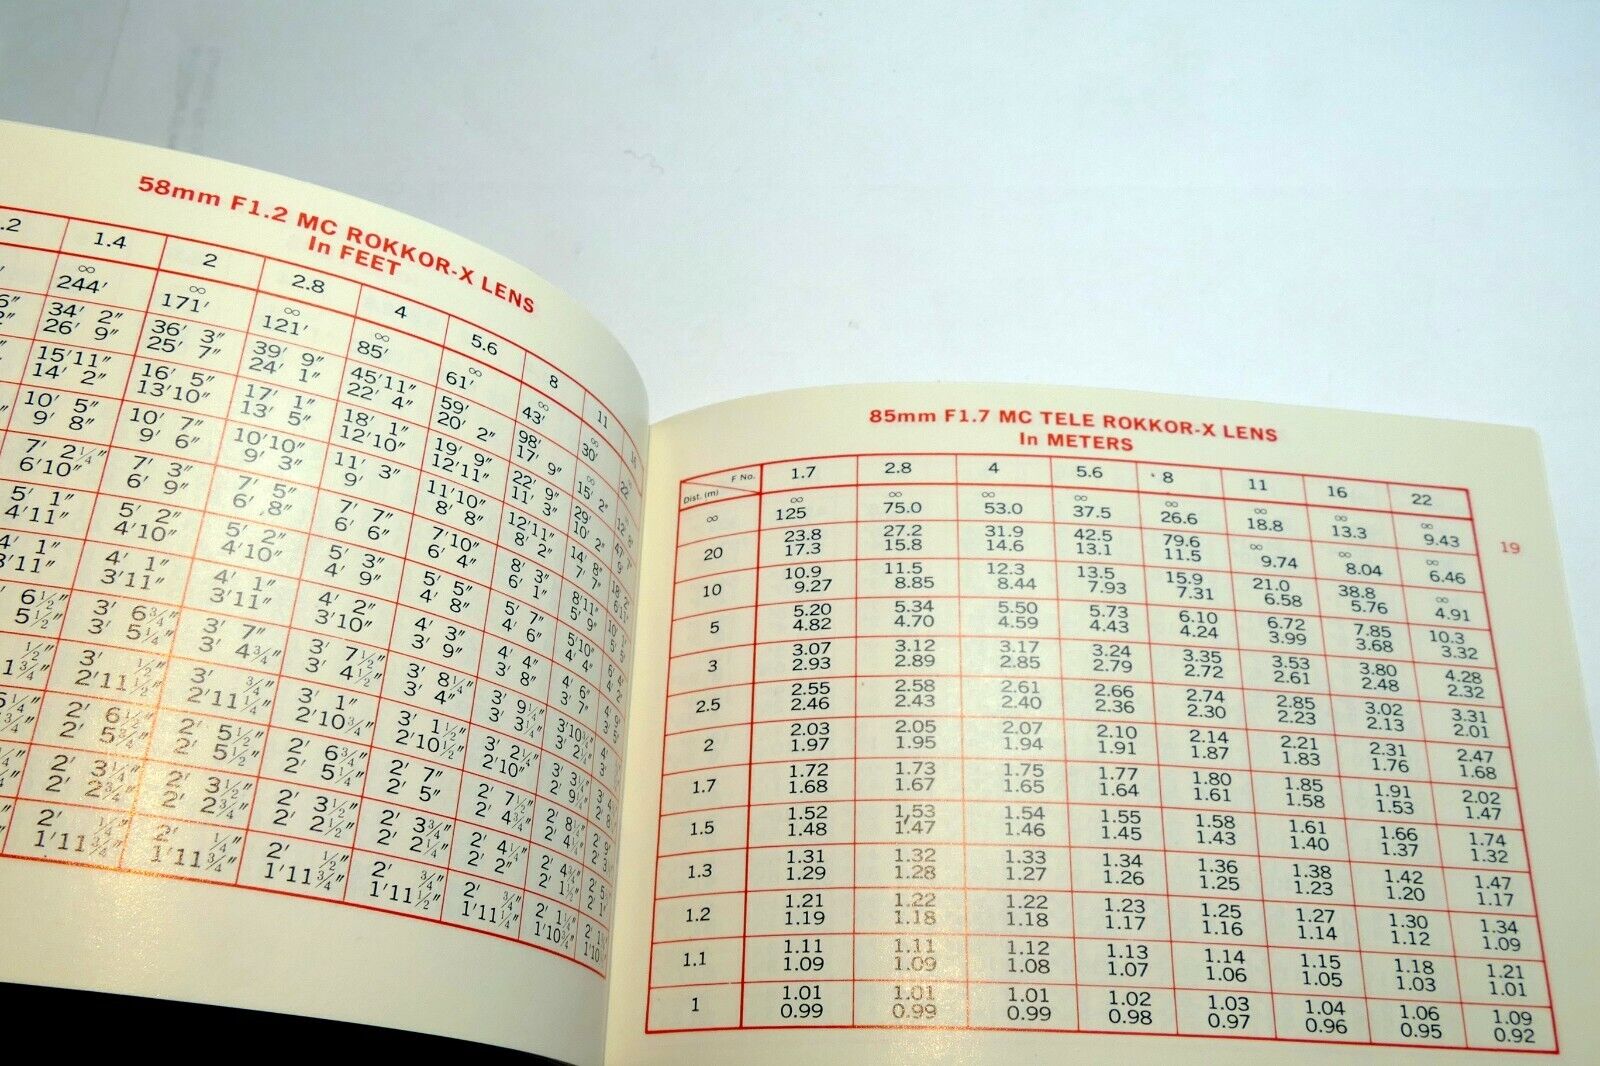 58mm F1.2 MC ROKKOR-X LENS
In FEET
.2 1.4 2 2.8 4 5.6 8 11 16
∞ ∞ ∞ ∞ ∞ ∞ ∞
244' 171' 121' 85' 61' 43' 30'
34' 2" 36' 3" 39' 9" 45'11" 59' 98' ∞
26' 9" 25' 7" 24' 1" 22' 4" 20' 2" 17' 9" 15' 2"
15'11" 16' 5" 17' 1" 18' 1" 19' 9" 22' 9" 29'
14' 2" 13'10" 13' 5" 12'10" 12'11" 11' 3" 10' 2"
10' 5" 10' 7" 10'10" 11' 3" 11'10" 12'11" 14' 8"
9' 8" 9' 6" 9' 3" 9' 8' 8" 8' 2" 7' 7"
7' 2¼" 7' 3" 7' 5" 7' 7" 7'10" 8' 3" 8'11"
6'10" 6' 9" 6' 8" 6' 6" 6' 4" 6' 1" 5' 9"
5' 1" 5' 2" 5' 2" 5' 3" 5' 5" 5' 7" 5'10"
4'11" 4'10" 4'10" 4' 9" 4' 8" 4' 6" 4' 4"
4' 1" 4' 1" 4' 1" 4' 2" 4' 3" 4' 4" 4' 6"
3'11" 3'11" 3'11" 3'10" 3' 9" 3' 8" 3' 7"
6½" 3' 6¾" 3' 7" 3' 7½" 3' 8¼" 3' 9¼" 3'10¾"
5½" 3' 5¼" 3' 4¾" 3' 4½" 3' 4" 3' 3¼" 3' 2¼"
½" 3' ½" 3' ¾" 3' 1" 3' 1½" 3' 2¼" 3' 3¼"
1¾" 2'11½" 2'11¼" 2'10¾" 2'10½" 2'10" 2' 9¼"
2' 6½" 2' 5½" 2' 6¾" 2' 7" 2' 7½" 2' 8¼"
2' 5¾" 2' 5½" 2' 5¼" 2' 5" 2' 4¾" 2' 4¼"
2' 3¼" 2' 3½" 2' 3½" 2' 3¾" 2' 4¼" 2' 4¾"
2' 2¾" 2' 2¾" 2' 2½" 2' 2¼" 2' 2" 2' 1½"
2' ¼" 2' ¼" 2' ½" 2' ¾" 2' ¾" 2' 1¼"
1'11¾" 1'11¾" 1'11¾" 1'11½" 1'11¼" 1'10¾"
85mm F1.7 MC TELE ROKKOR-X LENS
In METERS
F No.
Dist. (m) 1.7 2.8 4 5.6 8 11 16 22
∞ ∞ ∞ ∞ ∞ ∞ ∞ ∞
∞ 125 75.0 53.0 37.5 26.6 18.8 13.3 9.43
23.8 27.2 31.9 42.5 79.6 ∞ ∞ ∞
20 17.3 15.8 14.6 13.1 11.5 9.74 8.04 6.46
19
10.9 11.5 12.3 13.5 15.9 21.0 38.8 ∞
10 9.27 8.85 8.44 7.93 7.31 6.58 5.76 4.91
5.20 5.34 5.50 5.73 6.10 6.72 7.85 10.3
5 4.82 4.70 4.59 4.43 4.24 3.99 3.68 3.32
3.07 3.12 3.17 3.24 3.35 3.53 3.80 4.28
3 2.93 2.89 2.85 2.79 2.72 2.61 2.48 2.32
2.55 2.58 2.61 2.66 2.74 2.85 3.02 3.31
2.5 2.46 2.43 2.40 2.36 2.30 2.23 2.13 2.01
2.03 2.05 2.07 2.10 2.14 2.21 2.31 2.47
2 1.97 1.95 1.94 1.91 1.87 1.83 1.76 1.68
1.72 1.73 1.75 1.77 1.80 1.85 1.91 2.02
1.7 1.68 1.67 1.65 1.64 1.61 1.58 1.53 1.47
1.52 1.53 1.54 1.55 1.58 1.61 1.66 1.74
1.5 1.48 1.47 1.46 1.45 1.43 1.40 1.37 1.32
1.31 1.32 1.33 1.34 1.36 1.38 1.42 1.47
1.3 1.29 1.28 1.27 1.26 1.25 1.23 1.20 1.17
1.21 1.22 1.22 1.23 1.25 1.27 1.30 1.34
1.2 1.19 1.18 1.18 1.17 1.16 1.14 1.12 1.09
1.11 1.11 1.12 1.13 1.14 1.15 1.18 1.21
1.1 1.09 1.09 1.08 1.07 1.06 1.05 1.03 1.01
1.01 1.01 1.01 1.02 1.03 1.04 1.06 1.09
1 0.99 0.99 0.99 0.98 0.97 0.96 0.95 0.92